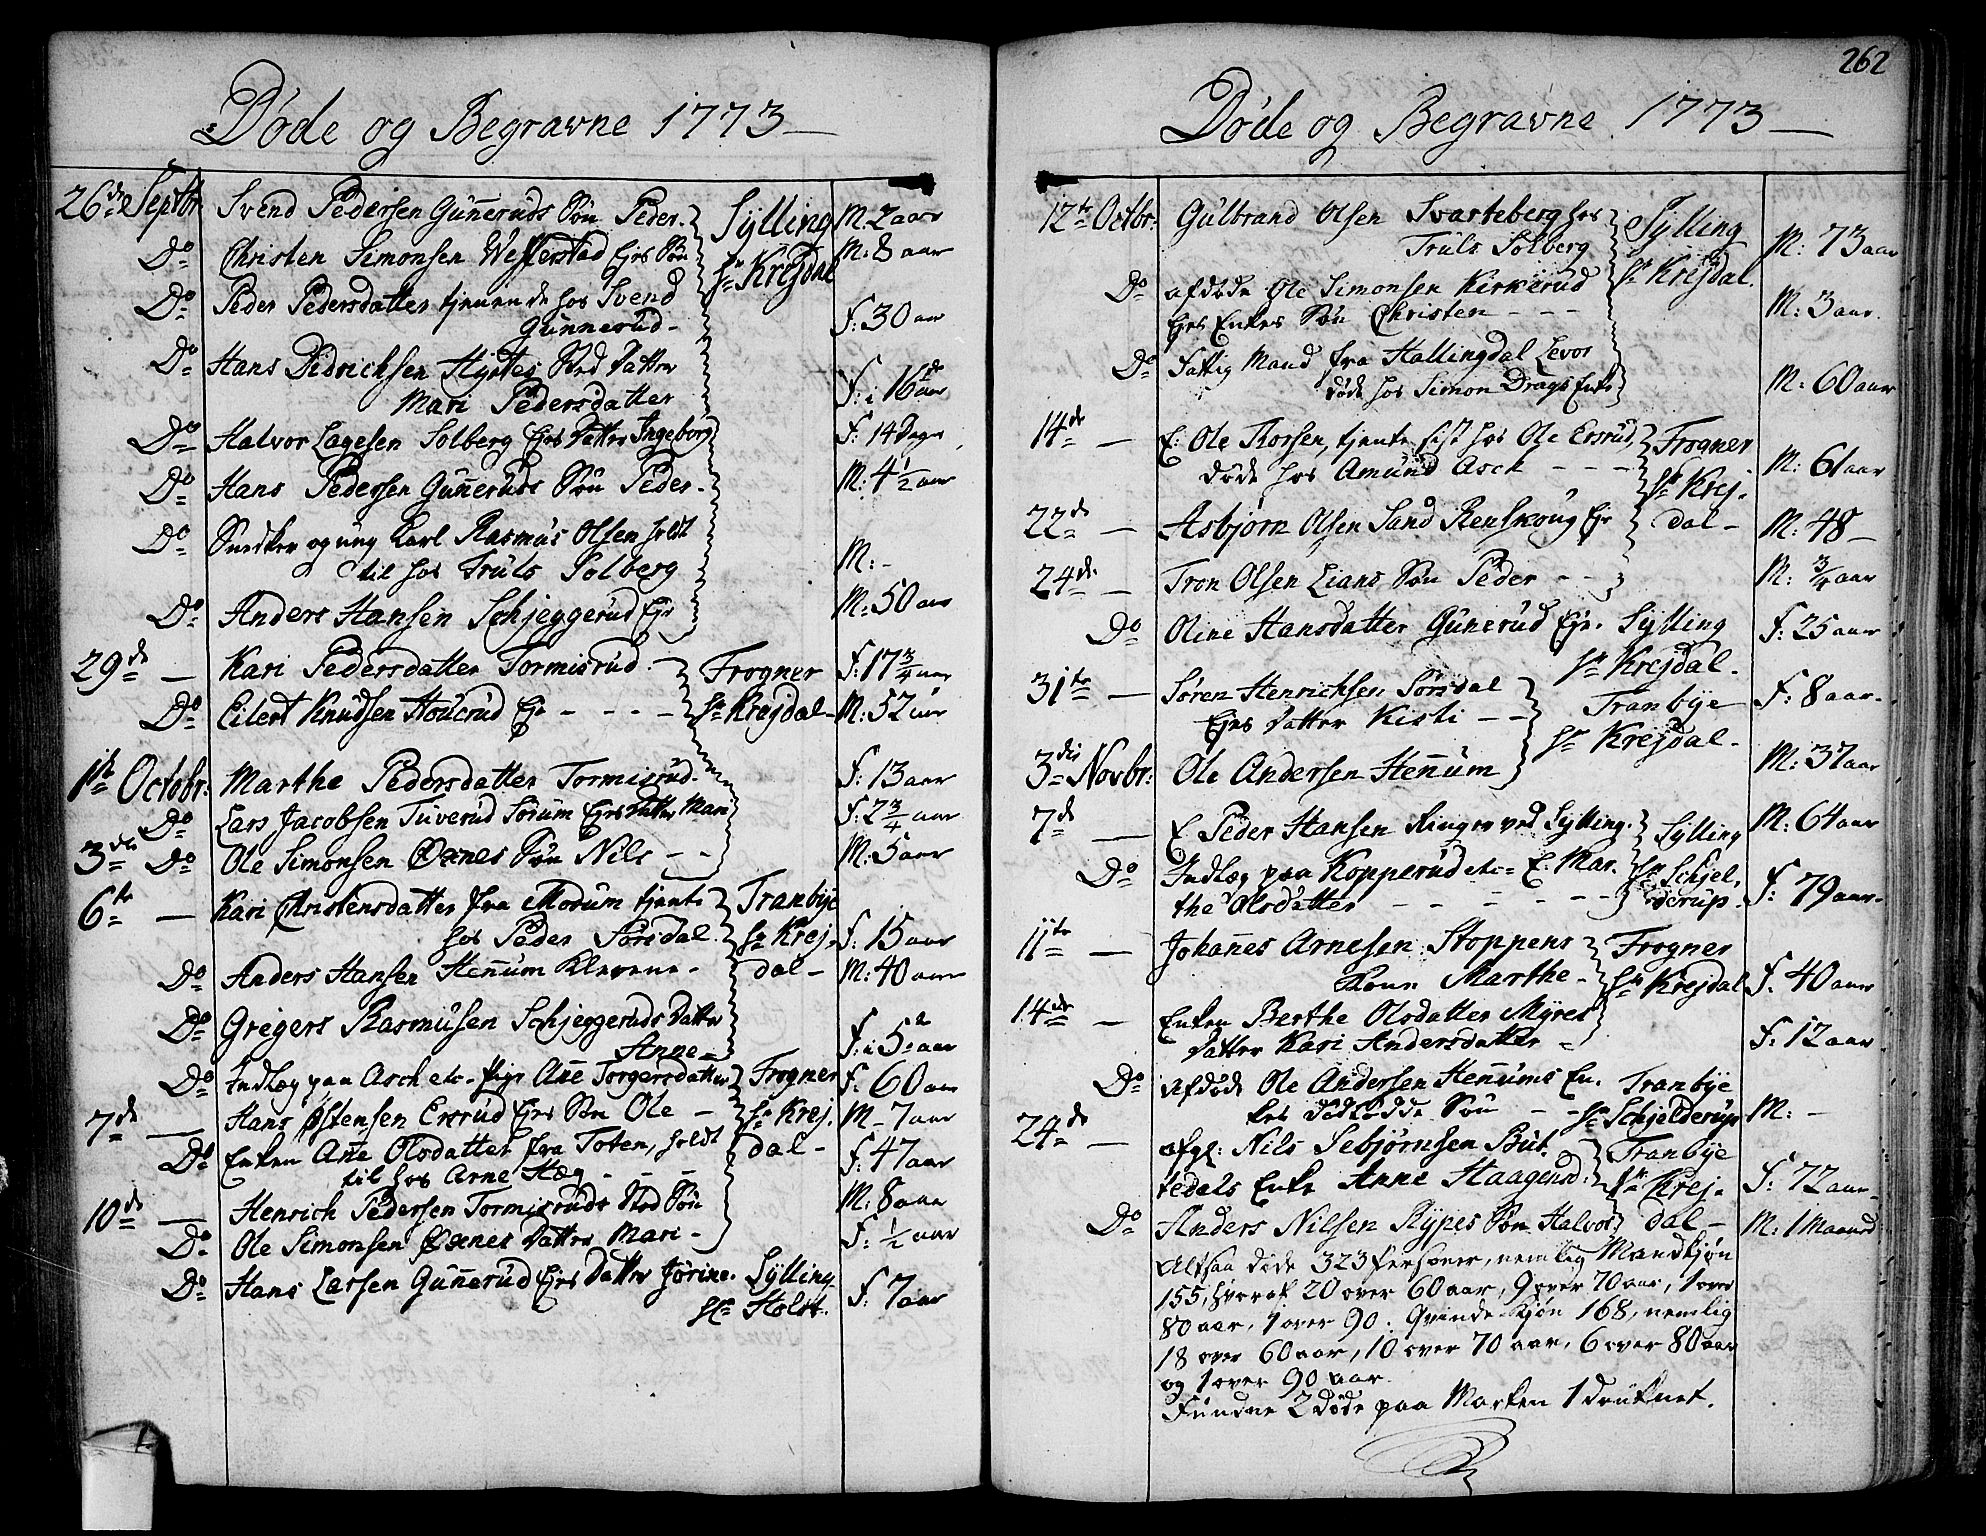 Døde og Begravne 1773
26de Septbr. Svend Pedersen Guñeruds Søn Peder. Sylling M: 2 aar
Do Christen Simonsen Westerstad Ejes Søn sr. Krejdal M: 8 aar
Do Peder Pedersdatter tjenende hos Svend
Gunnerud - F: 30 aar
Do Hans Didrichsen Hyttes Sted Datter
Mari Pedersdatter F: i 16de aar
Do Halvor Lagesen Solberg Ejes Datter Ingeborg F: 14 Dage
Do Hans Pedersen Guñeruds Søn Peder - M: 4 1/2 aar
Do Snedker og ung Karl Rasmus Olsen holdt
til hos Truls Solberg M: -
Do Anders Hansen Schjeggerud Eje M: 50 aar
29de - Kari Pedersdatter Tormisrud - Frogner F: 17 3/4 aar
Do Eilert Knudsen Houerud Eje - - - - sr. Krejdal - M: 52 aar
1te Octobr. Marthe Pedersdatter Tormisrud. F: 13 aar
Do Lars Jacobsen Tuverud Sørum Ejes Datter Mari F: 2 3/4 aar
3die Do Ole Simonsen Øxnes Søn Nils - - M: 5 aar
6te - Kari Christensdatter fra Modum tjente Tranbye
hos Peder Sørsdal. sr. Krej- F: 15 aar
Do Anders Hansen Heñum Klevene - dal - M: 40 aar
Do Gregers Rasmusen Schjeggeruds Datter
Anne - F: i 5te aar
Do Indlæg paa Asch etc. Pige Añe Torgersdatter Frogner F: 60 aar
7de - Hans Østensen Ersrud Ejes Søn Ole - sr. Krej. M - 7 aar
Do Enken Añe Olsdatter fra Toten, holdt dal -
til hos Arne Hæg - - - F: 47 aar
10de - Henrich Pedersen Tormisruds Sted Søn M: 8 aar
Do Ole Simonsen Øxnes Datter Mari - F: 1/2 aar
Do Hans Larsen Guñerud Ejes Datter Jørine. Sylling F: 7 aar
sr. Holst.
262
Døde og Begravne 1773
12te Octbr: Gulbrand Olsen Svarteberg hos Sylling
Truls Solberg sr. Krejdal. M: 73 aar
Do afdøde Ole Simonsen Kirkerud
Ejes Enkes Søn Christen - - - M: 3 aar.
Do Fattig Mand fra Hallingdal Levor
døde hos Simon Drags Enke. M: 60 aar
14de - E: Ole Thorsen, tjente sist hos Ole Ersrud, Frogner
døde hos Amund Asch - - - sr. Krej- M: 61 aar
22de - Asbjørn Olsen Sand Renskoug Eje dal - M: 48 -
24de - Tron Olsen Lians Søn Peder - - M: 3/4 aar
Do Oline Hansdatter Gunerud Eje. Sylling F: 25 aar
sr. Krejdal.
31te - Søren Henrichsen Sørsdal Tranbye F: 8 aar.
Ejes Datter Kisti - - sr. Krejdal -
3die Novbr: Ole Andersen Heñum M: 37 aar
7de - E Peder Hansen Ringer ved Sylling. Sylling M: 64 aar
Do Indlæg paa Kopperud etc - E: Mar- sr. Schjel-
the Olsdatter - - - - - derup. F: 79 aar.
11te - Johañes Arnesen Stoppens Frogner
Kone Marthe - sr. Krejdal F: 40 aar
14de - Enken Berthe Olsdatter Myres
Datter Kari Andersdatter - F: 12 aar
Do afdøde Ole Andersen Heñums En- Tranbye
kes dødfødde Søn - - sr. Schjelderup M: -
24de - afgl: Nils Sebjørnsen But- Tranbye
tedals Enke Anne Haagensd: sr. Krej- F: 72 aar
Do Anders Nilsen Rypes Søn Halvor dal - M: 1 Maaned
Altsaa døde 323 Personer, nemlig Mandkjøn
155, hvoraf 20 over 60 aar, 9 over 70 aar, 1 over
80 aar, 1 over 90. Qvindekjøn 168, nemlig
18 over 60 aar, 10 over 70 aar, 6 over 80 aar
og 1 over 90 aar.
Fundne 2 døde paa Marken 1 druknet.